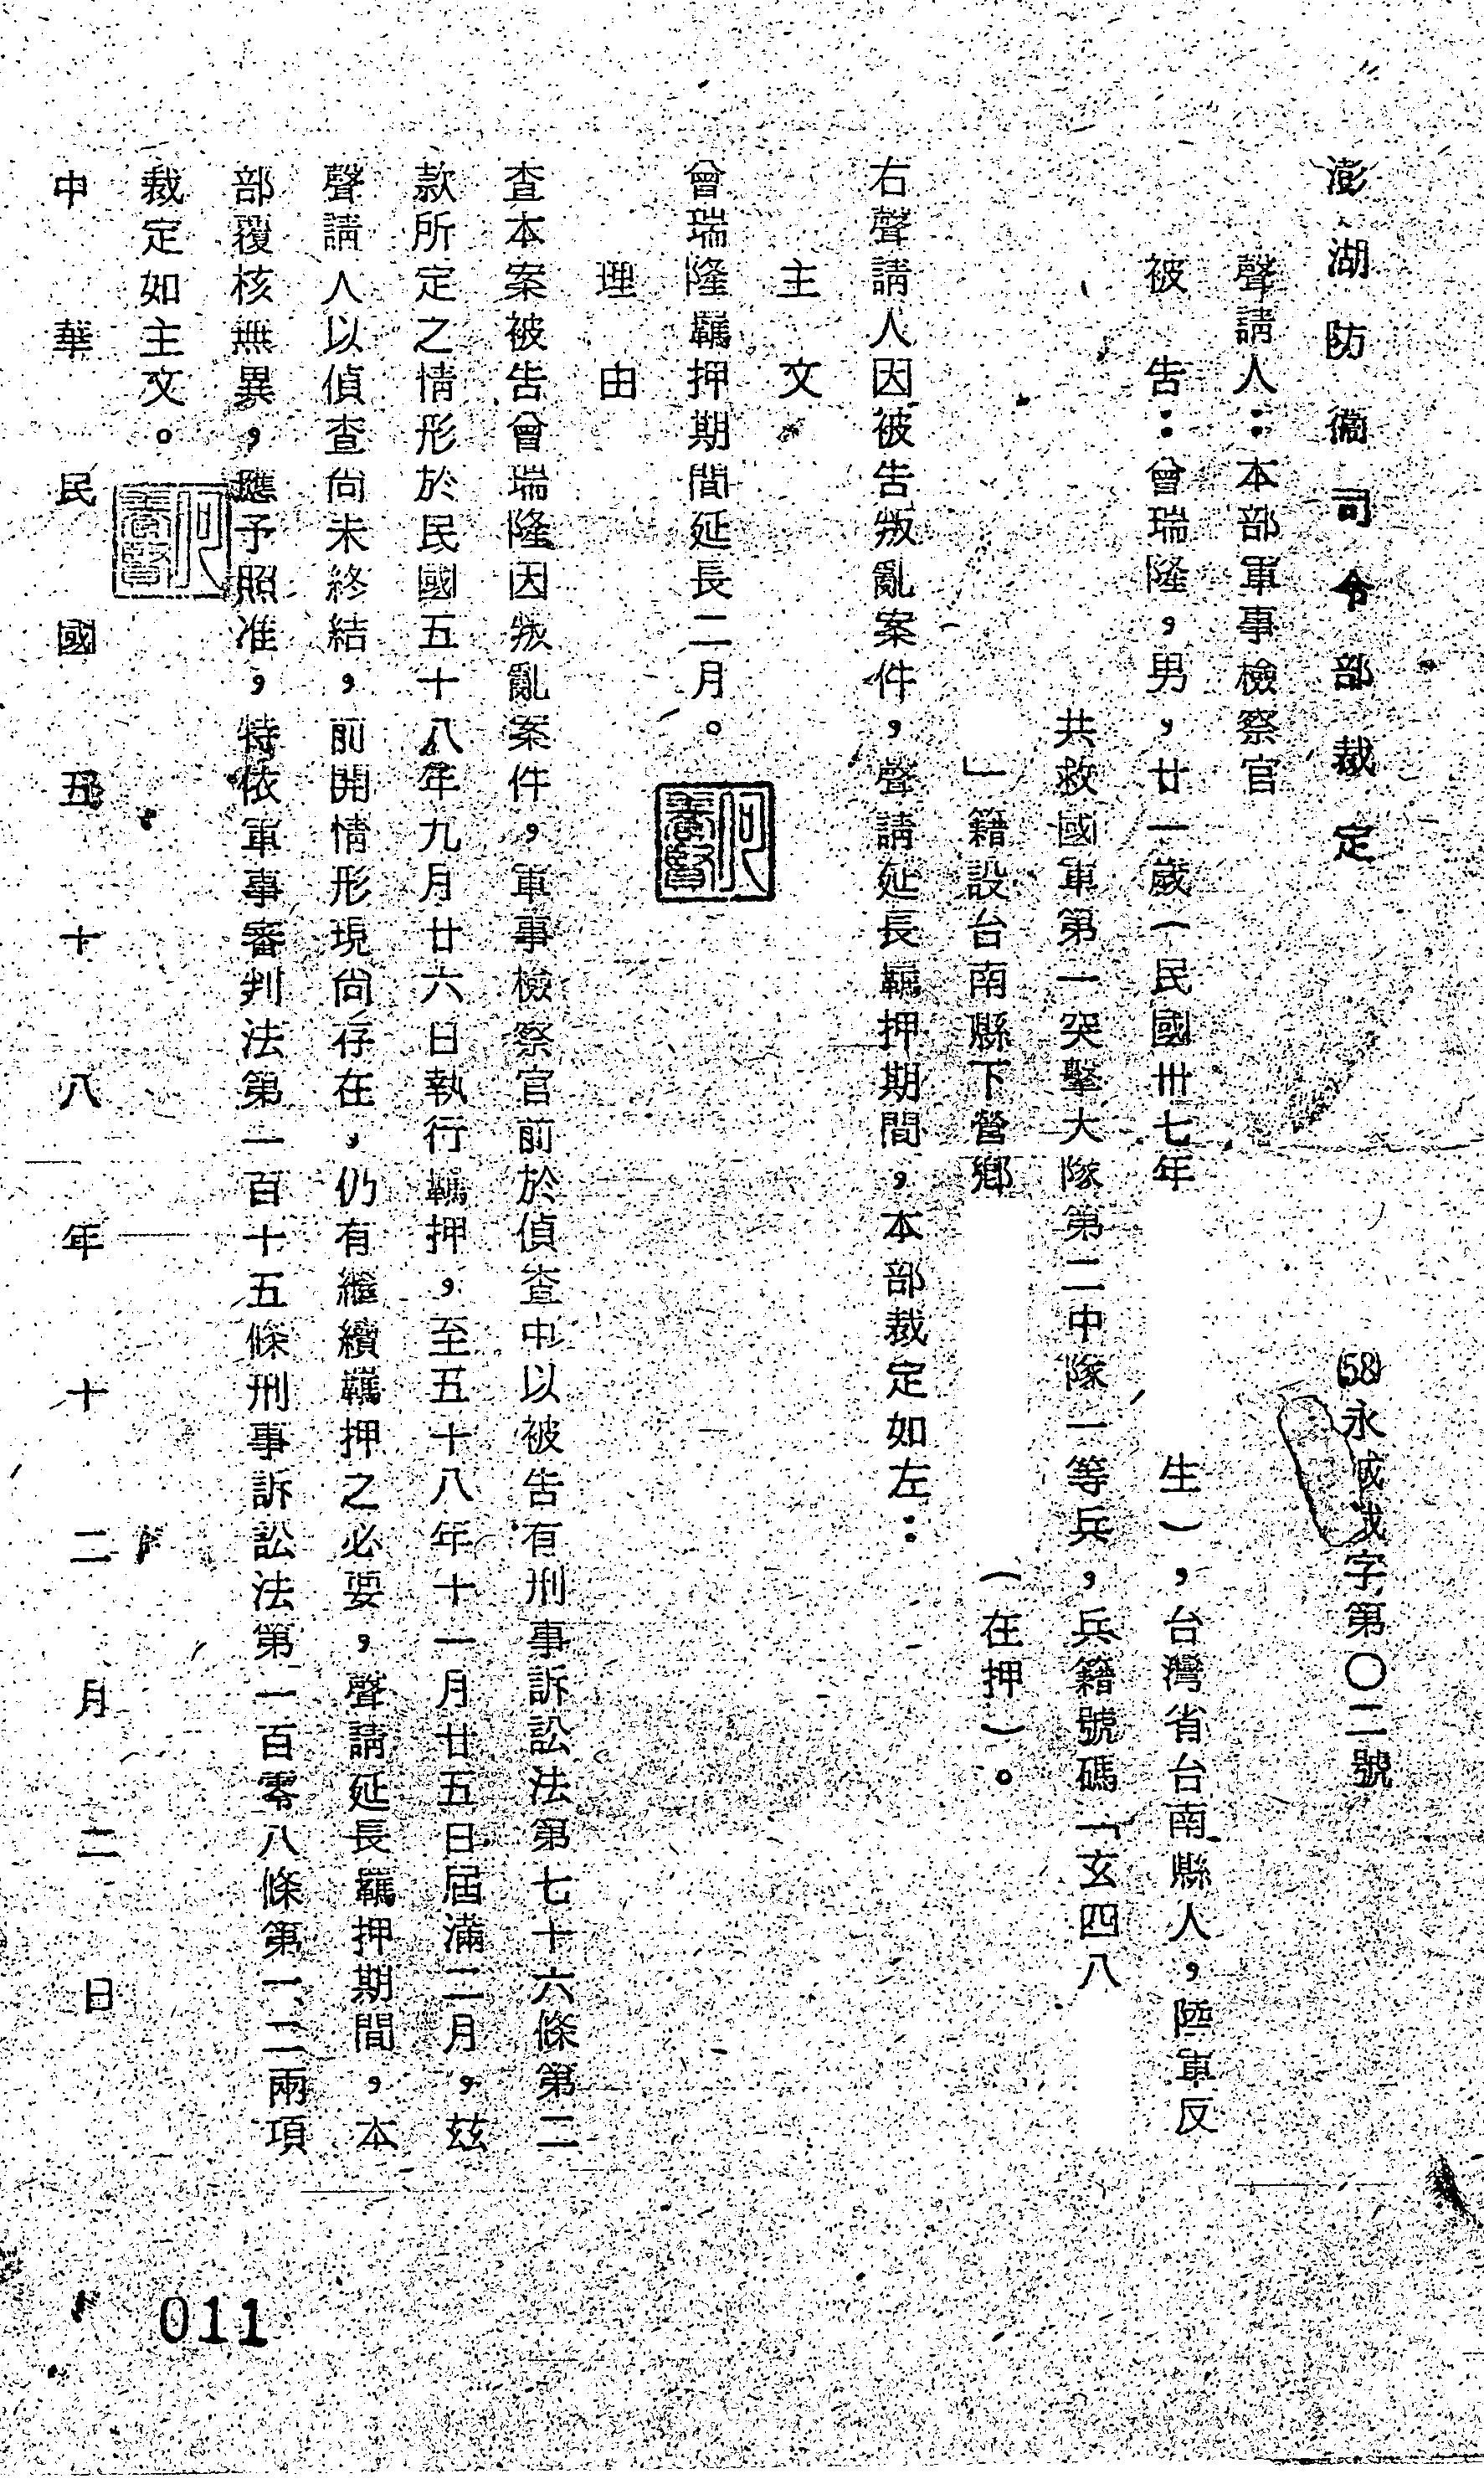 澎湖防衛司令部裁定
(58)永 字第〇二號
聲請人：本部軍事檢察官
被告：曾瑞隆，男，廿一歲（民國卅七年 生），台灣省台南縣人，陸軍反
共救國軍第一突擊大隊第二中隊一等兵，兵籍號碼「玄四八
」籍設台南縣下營鄉 （在押）。
右聲請人因被告叛亂案件，聲請延長羈押期間，本部裁定如左：
主文
曾瑞隆羈押期間延長二月。
理由
查本案被告曾瑞隆因叛亂案件，軍事檢察官前於偵查中以被告有刑事訴訟法第七十六條第二
款所定之情形於民國五十八年九月廿六日執行羈押，至五十八年十一月廿五日屆滿二月，茲
聲請人以偵查尚未終結，前開情形現尚存在，仍有繼續羈押之必要，聲請延長羈押期間，本
部覆核無異，應予照准，特依軍事審判法第一百十五條刑事訴訟法第一百零八條第一、二兩項
裁定如主文。
中華民國五十八年十二月二日
011